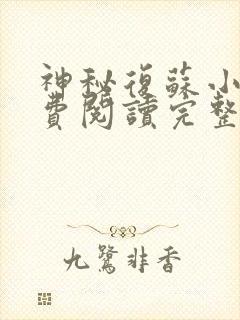 神秘復蘇小
費閱讀完整
九鷺非香